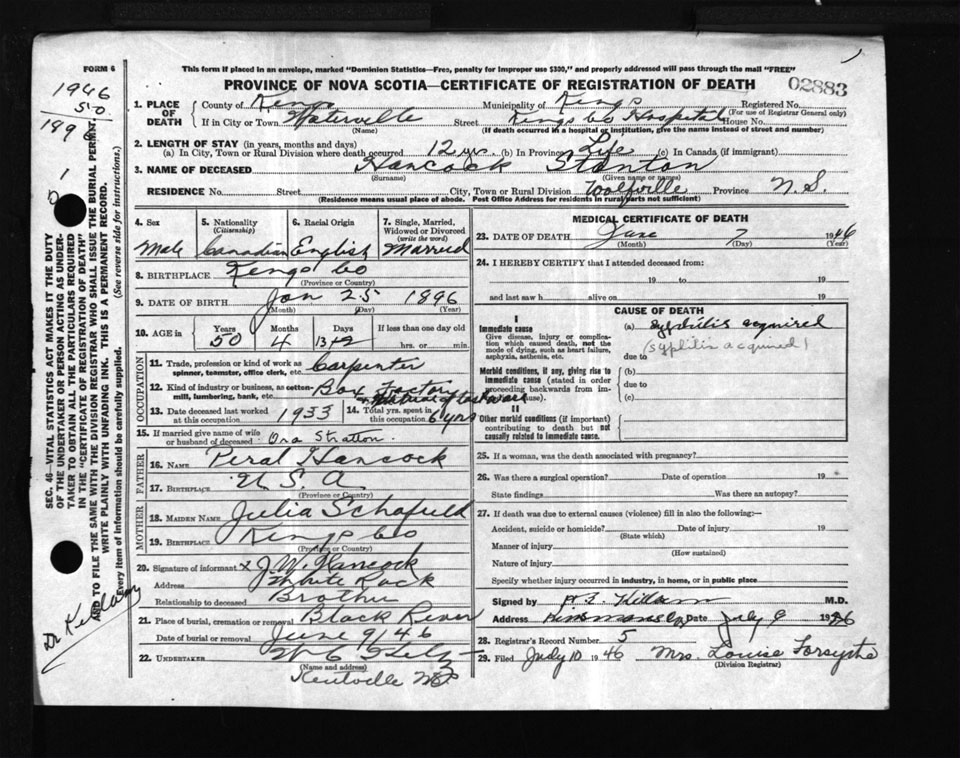 FORM 6
This form if placed in an envelope, marked "Dominion Statistics—Free, penalty for improper use $300," and properly addressed will pass through the mail "FREE"
PROVINCE OF NOVA SCOTIA—CERTIFICATE OF REGISTRATION OF DEATH
02883
1946
50
1896
1. PLACE OF DEATH
County of Kings Municipality of Kings Registered No.
(For use of Registrar General only)
If in City or Town Waterville Street Kings Co Hospital House No.
(Name) (If death occurred in a hospital or institution, give the name instead of street and number)
2. LENGTH OF STAY (in years, months and days)
(a) In City, Town or Rural Division where death occurred 12 yrs (b) In Province Life (c) In Canada (if immigrant)
3. NAME OF DECEASED Hancock Stanton
(Surname) (Given name or names)
RESIDENCE No. Street City, Town or Rural Division Wolfville Province N.S.
(Residence means usual place of abode. Post Office Address for residents in rural parts not sufficient)
4. Sex Male
5. Nationality (Citizenship) Canadian
6. Racial Origin English
7. Single, Married, Widowed or Divorced (write the word) Married
8. BIRTHPLACE Kings Co
(Province or Country)
9. DATE OF BIRTH Jan 25 1896
(Month) (Day) (Year)
10. AGE in Years 50 Months 4 Days 13 If less than one day old hrs. or min.
OCCUPATION
11. Trade, profession or kind of work as spinner, teamster, office clerk, etc. Carpenter
12. Kind of industry or business, as cotton-mill, lumbering, bank, etc. Box Factory
13. Date deceased last worked at this occupation 1933
14. Total yrs. spent in this occupation 6 yrs
15. If married give name of wife or husband of deceased Ora Stratton
FATHER
16. NAME Peral Hancock
17. BIRTHPLACE U.S.A
(Province or Country)
MOTHER
18. MAIDEN NAME Julia Schofield
19. BIRTHPLACE Kings Co
(Province or Country)
20. Signature of informant x J.W. Hancock
Address White Rock
Relationship to deceased Brother
21. Place of burial, cremation or removal Black River
Date of burial or removal June 9/46
22. UNDERTAKER
(Name and address)
Kentville NS
MEDICAL CERTIFICATE OF DEATH
23. DATE OF DEATH June 7 1946
(Month) (Day) (Year)
24. I HEREBY CERTIFY that I attended deceased from:
19 to 19
and last saw h alive on 19
CAUSE OF DEATH
I
Immediate cause
Give disease, injury or complication which caused death, not the mode of dying, such as heart failure, asphyxia, asthenia, etc.
(a) syphilis acquired
(syphilis acquired)
due to
Morbid conditions, if any, giving rise to immediate cause (stated in order proceeding backwards from immediate cause).
(b)
due to
(c)
II
Other morbid conditions (if important) contributing to death but not causally related to immediate cause.
25. If a woman, was the death associated with pregnancy?
26. Was there a surgical operation? Date of operation 19
State findings Was there an autopsy?
27. If death was due to external causes (violence) fill in also the following:—
Accident, suicide or homicide? Date of injury 19
(State which)
Manner of injury
(How sustained)
Nature of injury
Specify whether injury occurred in industry, in home, or in public place
Signed by M.D.
Address Date July 9 1946
28. Registrar's Record Number 5
29. Filed July 10 1946 Mrs. Louise Forsythe
(Division Registrar)
SEC. 46—VITAL STATISTICS ACT MAKES IT THE DUTY
OF THE UNDERTAKER OR PERSON ACTING AS UNDERTAKER TO OBTAIN ALL THE PARTICULARS REQUIRED
IN THE "CERTIFICATE OF REGISTRATION OF DEATH"
AND TO FILE THE SAME WITH THE DIVISION REGISTRAR WHO SHALL ISSUE THE BURIAL PERMIT.
WRITE PLAINLY WITH UNFADING INK. THIS IS A PERMANENT RECORD.
Every item of information should be carefully supplied. (See reverse side for instructions.)